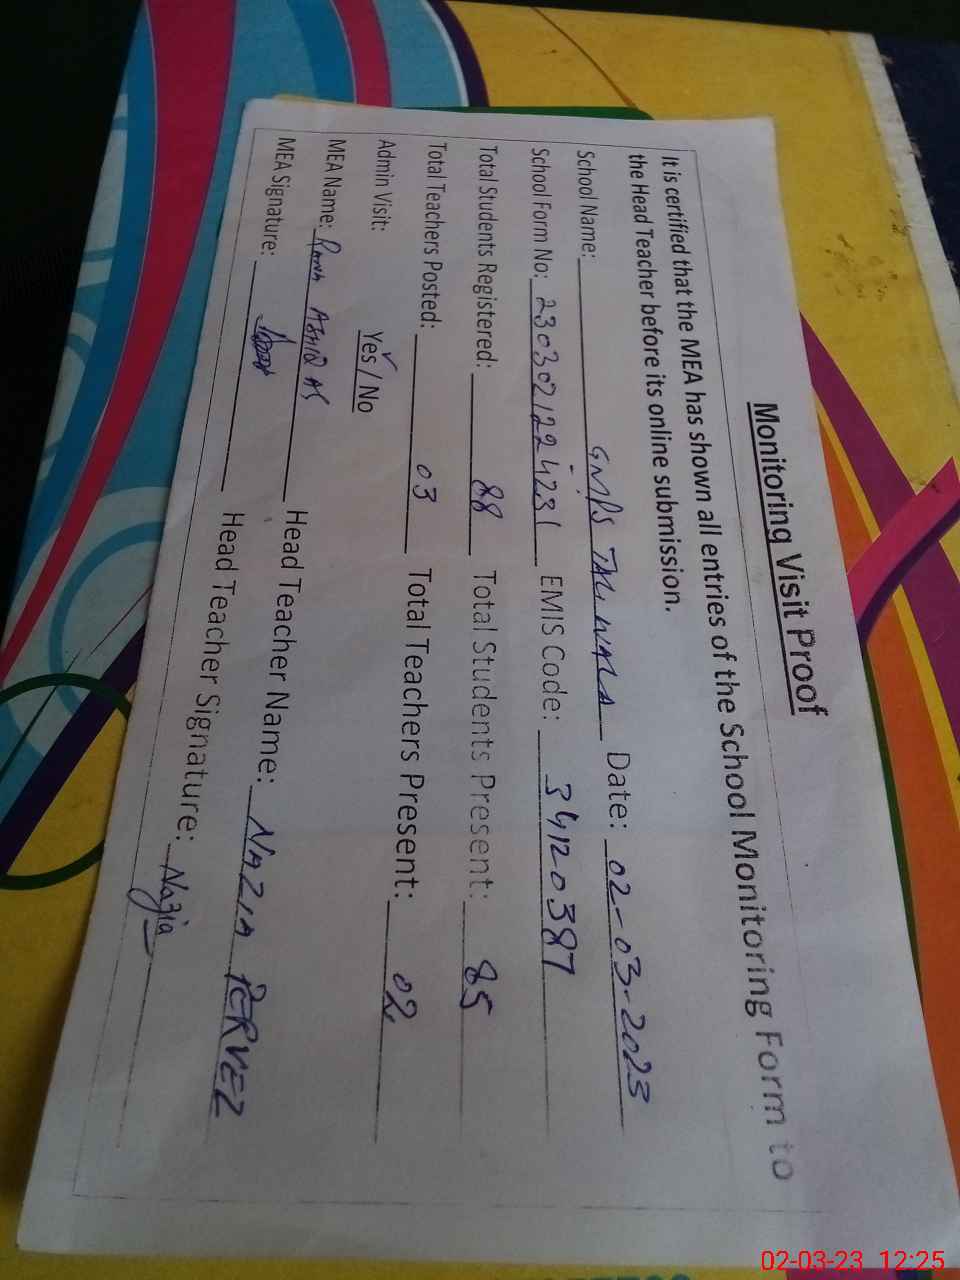 Monitoring Visit Proof
It is certified that the MEA has shown all entries of the School Monitoring Form to
the Head Teacher before its online submission.
School Name: GMPS TALI WALA Date: 02-03-2023
School Form No: 2303021224231 EMIS Code: 34120387
Total Students Registered: 88 Total Students Present: 85
Total Teachers Posted: 03 Total Teachers Present: 02
Admin Visit: Yes / No
MEA Name: RANA ASHIQ Head Teacher Name: NAZIA PERVEZ
MEA Signature: Head Teacher Signature: Nazia
02-03-23 12:25